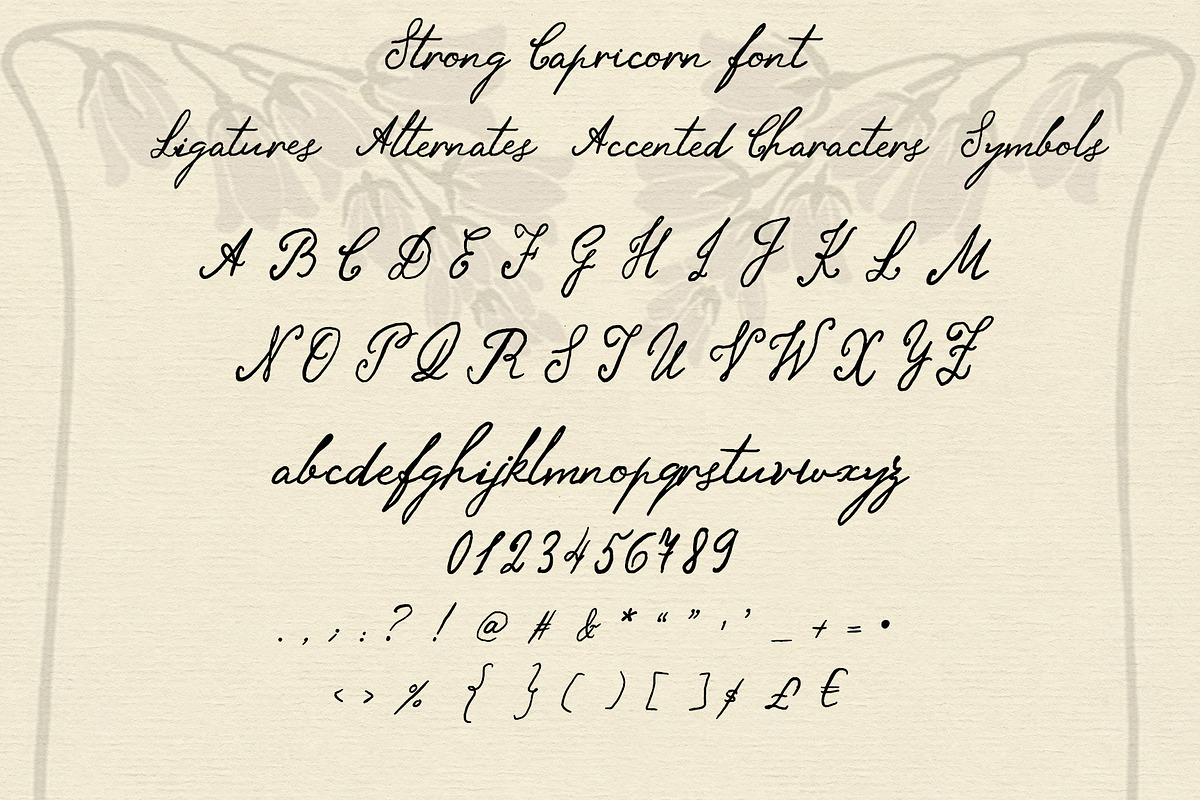 Strong Capricorn font
Ligatures Alternates Accented Characters Symbols
A B C D E F G H I J K L M
N O P Q R S T U V W X Y Z
abcdefghijklmnopqrstuvwxyz
0123456789
. , ; : ? ! @ # & * “ ” ‘ ’ _ + = •
< > % { } ( ) [ ] $ £ €